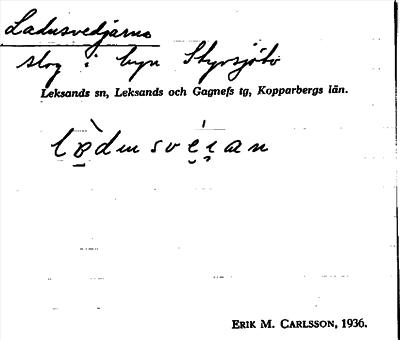 Ladusvedjarna
slog i byn Styrsjöbo
Leksands sn, Leksands och Gagnefs tg, Kopparbergs län.
ERIK M. CARLSSON, 1936.